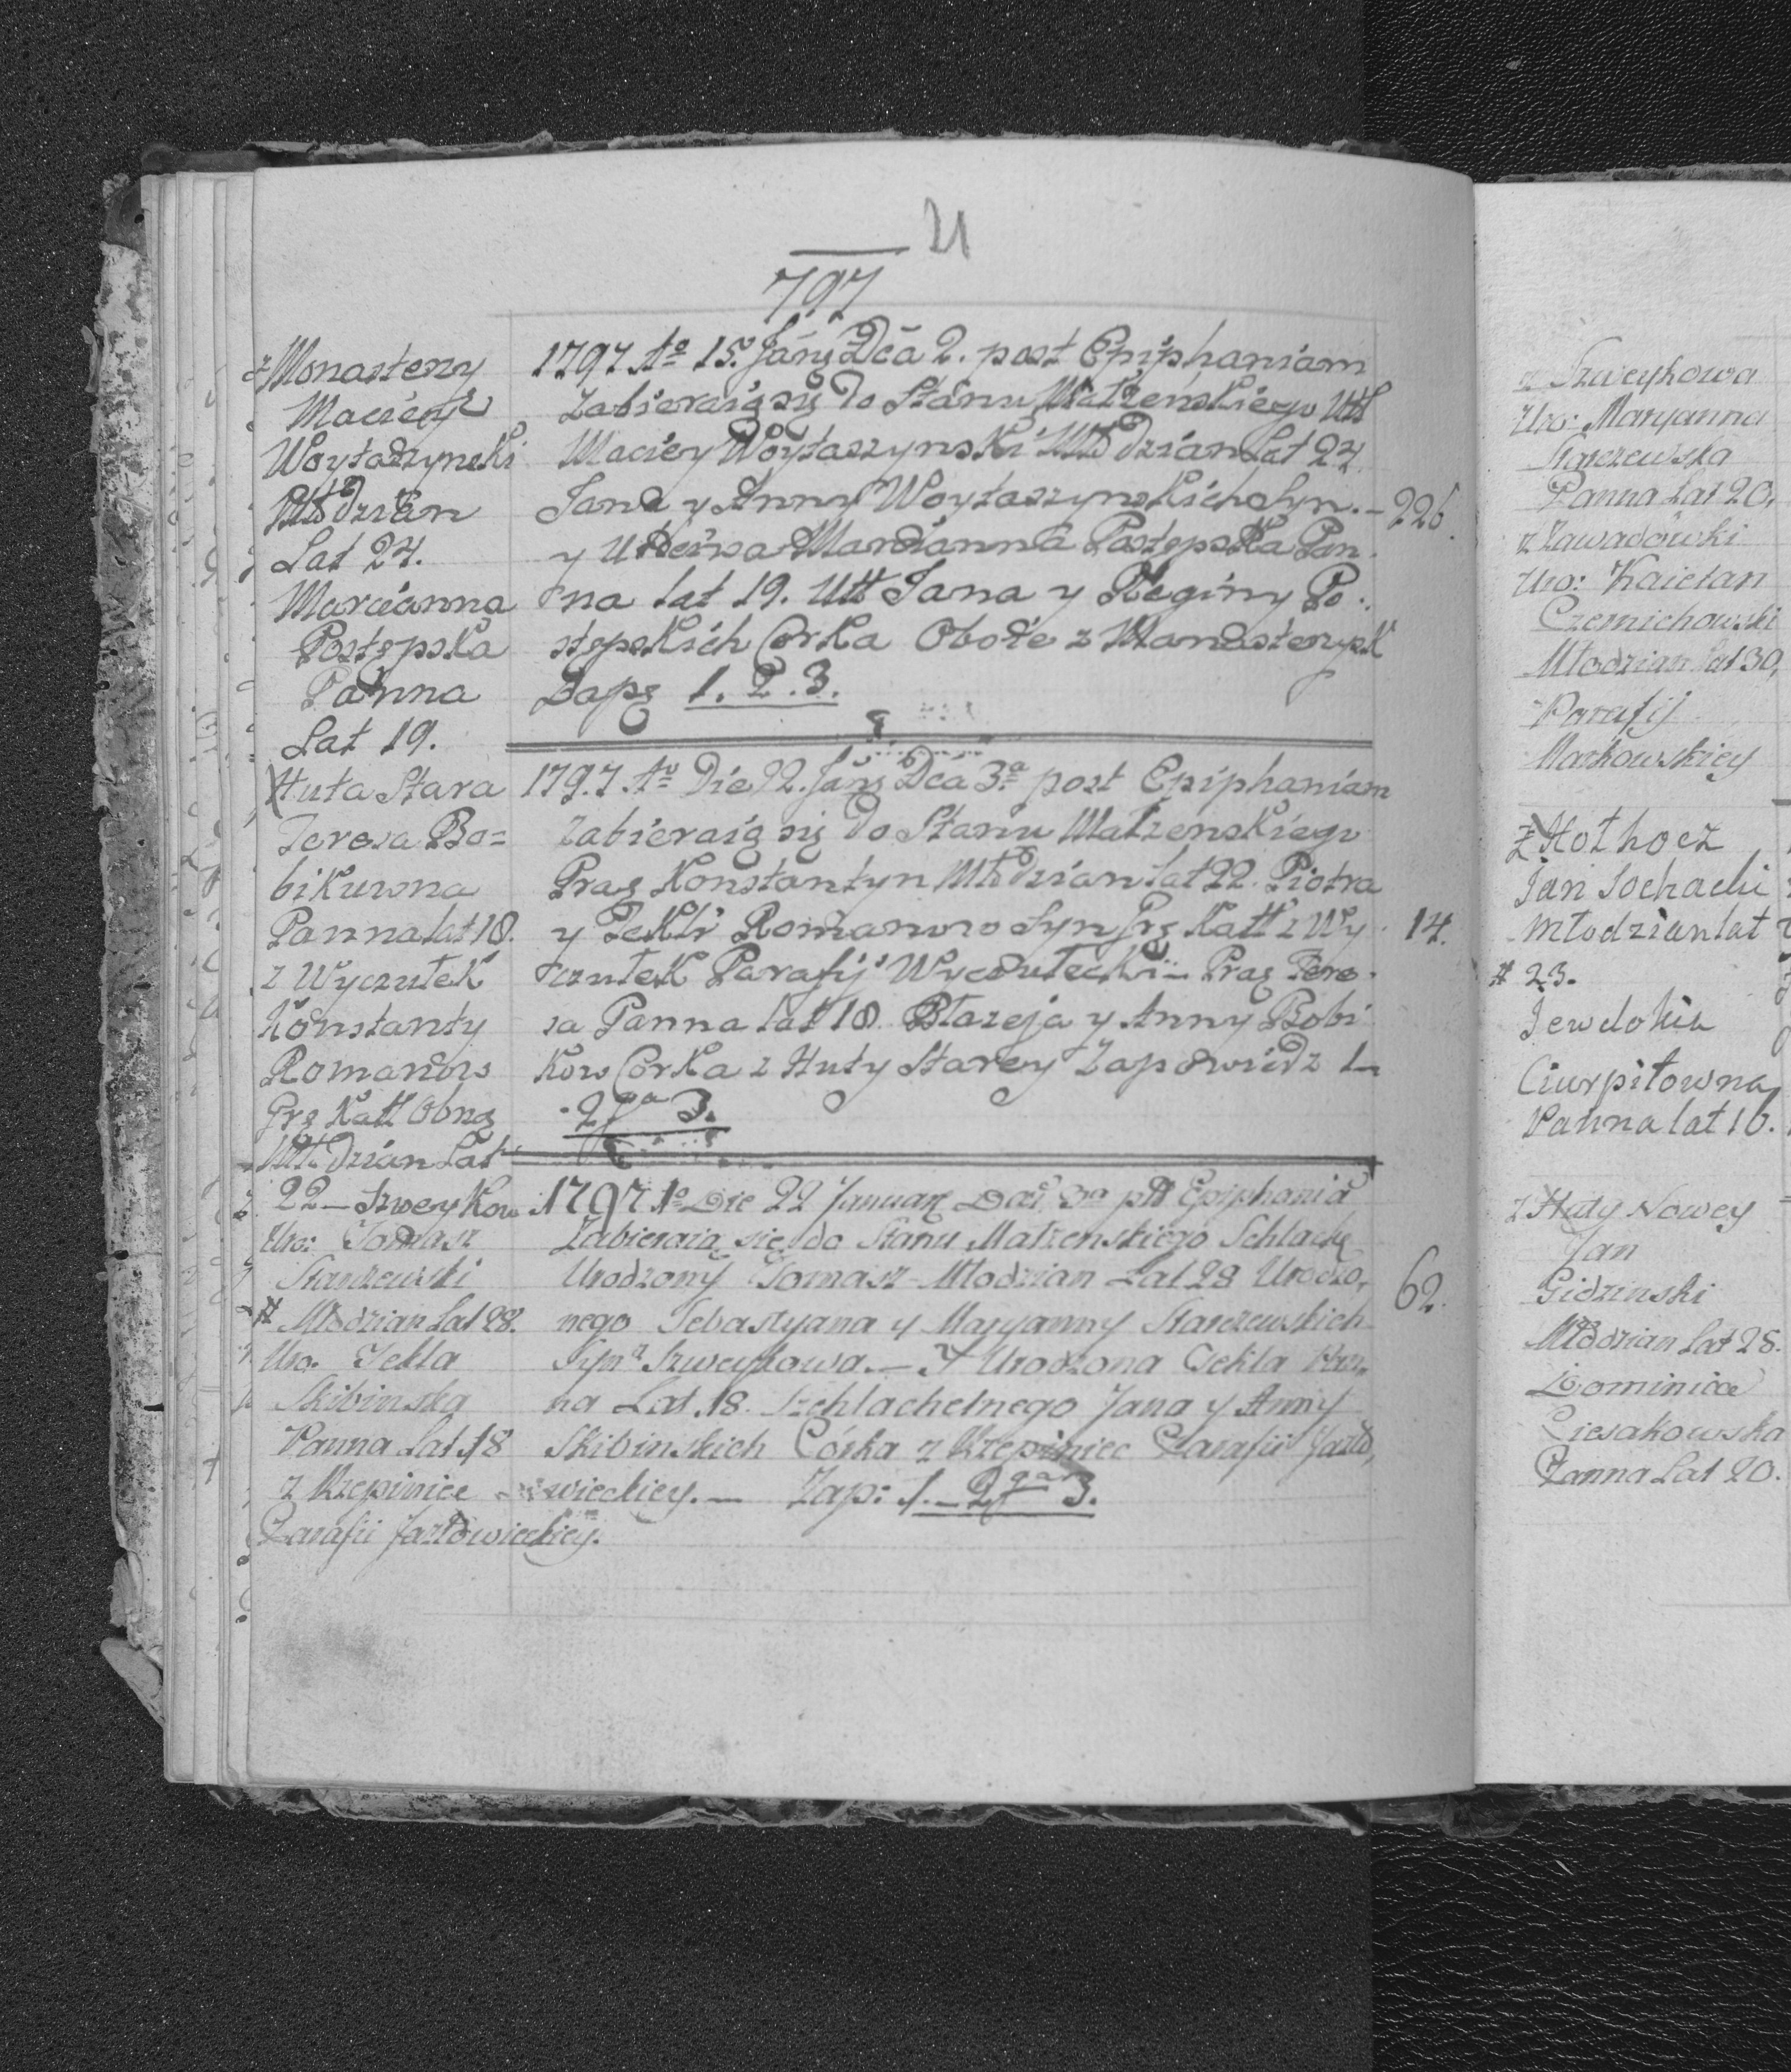 21
797
z Monastery
Maciey
Woytaszynski
Młodzian
Lat 24.
Marcianna
Postępska
Panna
Lat 19.
1797 Ao 15. Jany Dca 2. post Epiphaniam
Zabieraią się do Stanu Małżeńskiego Utt
Maciey Woytaszynski Młodzian Lat 24.
Jana y Anny Woytaszynskich Syn. - 226
y Utściwa Marcianna Postępska Pan
na lat 19. Utt Jana y Reginy Po.
stępskich Corka Oboie z Manasterysk
Zapę 1. 2. 3.
Huta Stara
Teresa Bo=
bikuwna
Panna lat 18.
z Wyczułek
Konstanty
Romanow
Grę Katt Obrzą
Młodzian Lat
22
1797. Ao Die 22. Jany Dca 3a post Epiphaniam
Zabieraią się do Stanu Matzenskiego
Prac Konstantyn Młodzian lat 22. Piotra
y Tekli Romanow Syn Grę Katt z Wy 14.
czułek Parafij Wyczułecki – Prac Tere
sa Panna lat 18. Błazeja y Anny Bobi
kow Corka z Huty Starey Zapowiedz 1
. 2ga 3.
– Szweykow
Uro: Tomasz
Skarzewski
# Młodzian Lat 28.
Uro. Tekla
Skibinska
Panna Lat 18
z Krzepinice
Parafii Jazłowieckiey.
1797 Ao Die 22 January Dca 3a pst Epiphania
Zabieraią się do Stanu Matzenskiego Schlache
Urodzony Tomasz Młodzian Lat 28 Urodzo,
nego Sebastyana y Maryanny Skarzewskich 62.
Syn z Szweykowa. – Y Urodzona Tekla Pan,
na Lat 18. Szchlachetnego Jana y Anny
Skibinskich Córka z Krzepiniec Parafii Jazło,
wieckiey. – Zap: 1. – 2ga 3.
z Szweykowa
Uro: Maryanna
Skarzewska
Panna Lat 20,
z Zawadowki
Uro: Kaietan
Czernichowski
Młodzian Lat 30,
Parafij
Markowskiey
z Hothocz
Jan Sochacki
Młodzian lat
# 23.
Jewdokia
Ciurpitowna
Panna lat 16.
z Huty Nowey
Jan
Gidzinski
Młodzian Lat 28.
Dominica
Ciesakowska
Panna Lat 20.